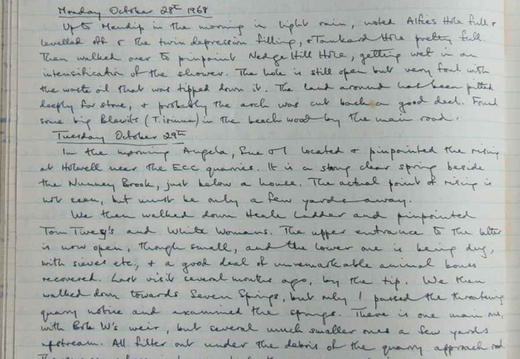 Monday October 28th 1968
Up to Mendip in the morning in light rain, noted Alfies Hole full &
levelled off & the twin depression filling, & Tankard Hole pretty full.
Then walked over to pinpoint Nedge Hill Hole, getting wet in an
intensification of the shower. The hole is still open but very foul with
the waste oil that was tipped down it. The land around has been pitted
deeply for stone, & probably the arch was cut back a good deal. Found
some big Blewits (T. in the beech wood by the main road.
Tuesday October 29th
In the morning Angela, Sue & I located & pinpointed the rising
at Holwell near the ECC quarries. It is a strong clear spring beside
the Nunney Brook, just below a house. The actual point of rising is
not seen, but must be only a few yards away.
We then walked down Heale Ladder and pinpointed
Tom Tivey's and White Womans. The upper entrance to the latter
is now open, though small, and the lower one is being dug,
with sieves etc, & a good deal of unremarkable animal bones
recovered. Last visit several months ago, by the tip. We then
walked down towards Seven Springs, but only I passed the threatening
quarry notice and examined the springs. There is one main one,
with Bob W's weir, but several much smaller ones a few yards
upstream. All filter out under the debris of the quarry approach road